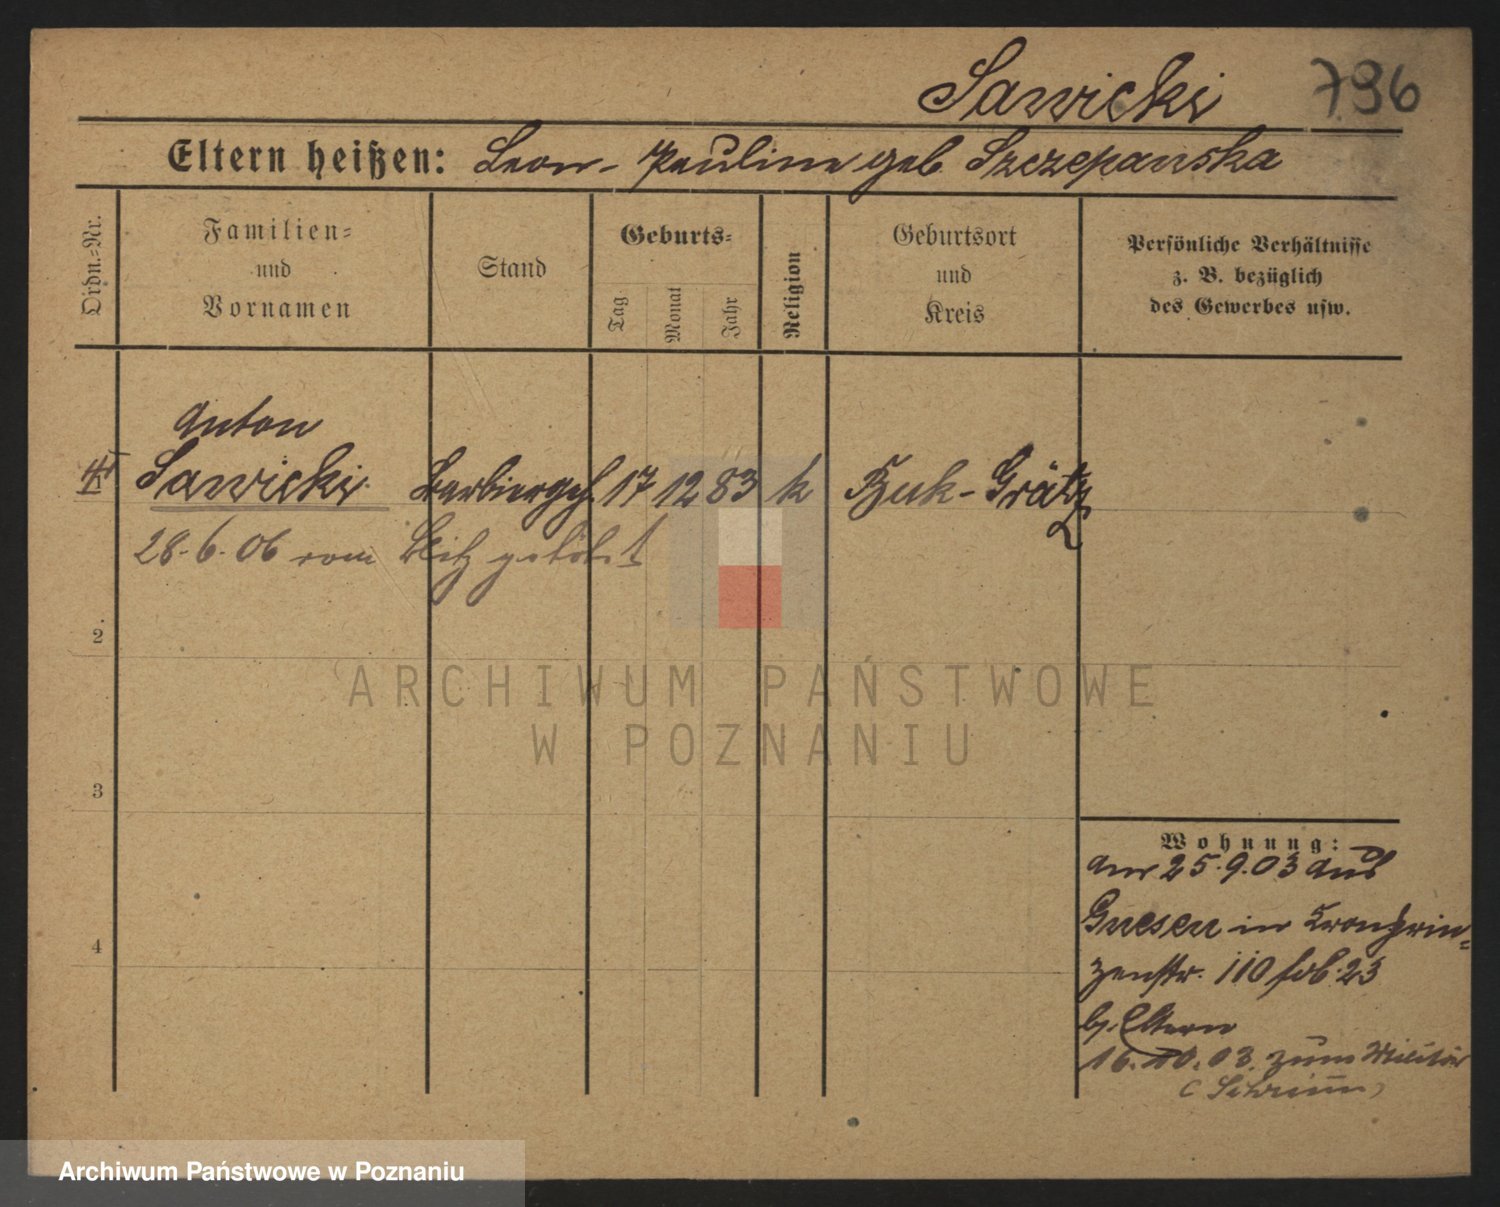 Sawicki 796
Eltern heißen: Leon - Pauline geb. Szczepanska
Ordn.-Nr.
Familien-
und
Vornamen
Stand
Geburts-
Tag
Monat
Jahr
Religion
Geburtsort
und
Kreis
Persönliche Verhältnisse
z. B. bezüglich
des Gewerbes usw.
Anton
Sawicki Barbiergeh. 17 12 83 k Buk - Grätz
28.6.06 vom Blitz getötet
2
3
4
Wohnung:
am 25.9.03 aus
Gnesen in Kronprin-
zenstr. 110 fdb. 23
b. Eltern
16.10.03. zum Militär
(Schrimm)
ARCHIWUM PAŃSTWOWE
W POZNANIU
Archiwum Państwowe w Poznaniu